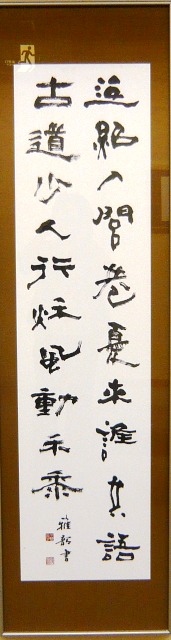 返照入閭巷憂来誰共語
古道少人行秌風動禾黍
雅 書